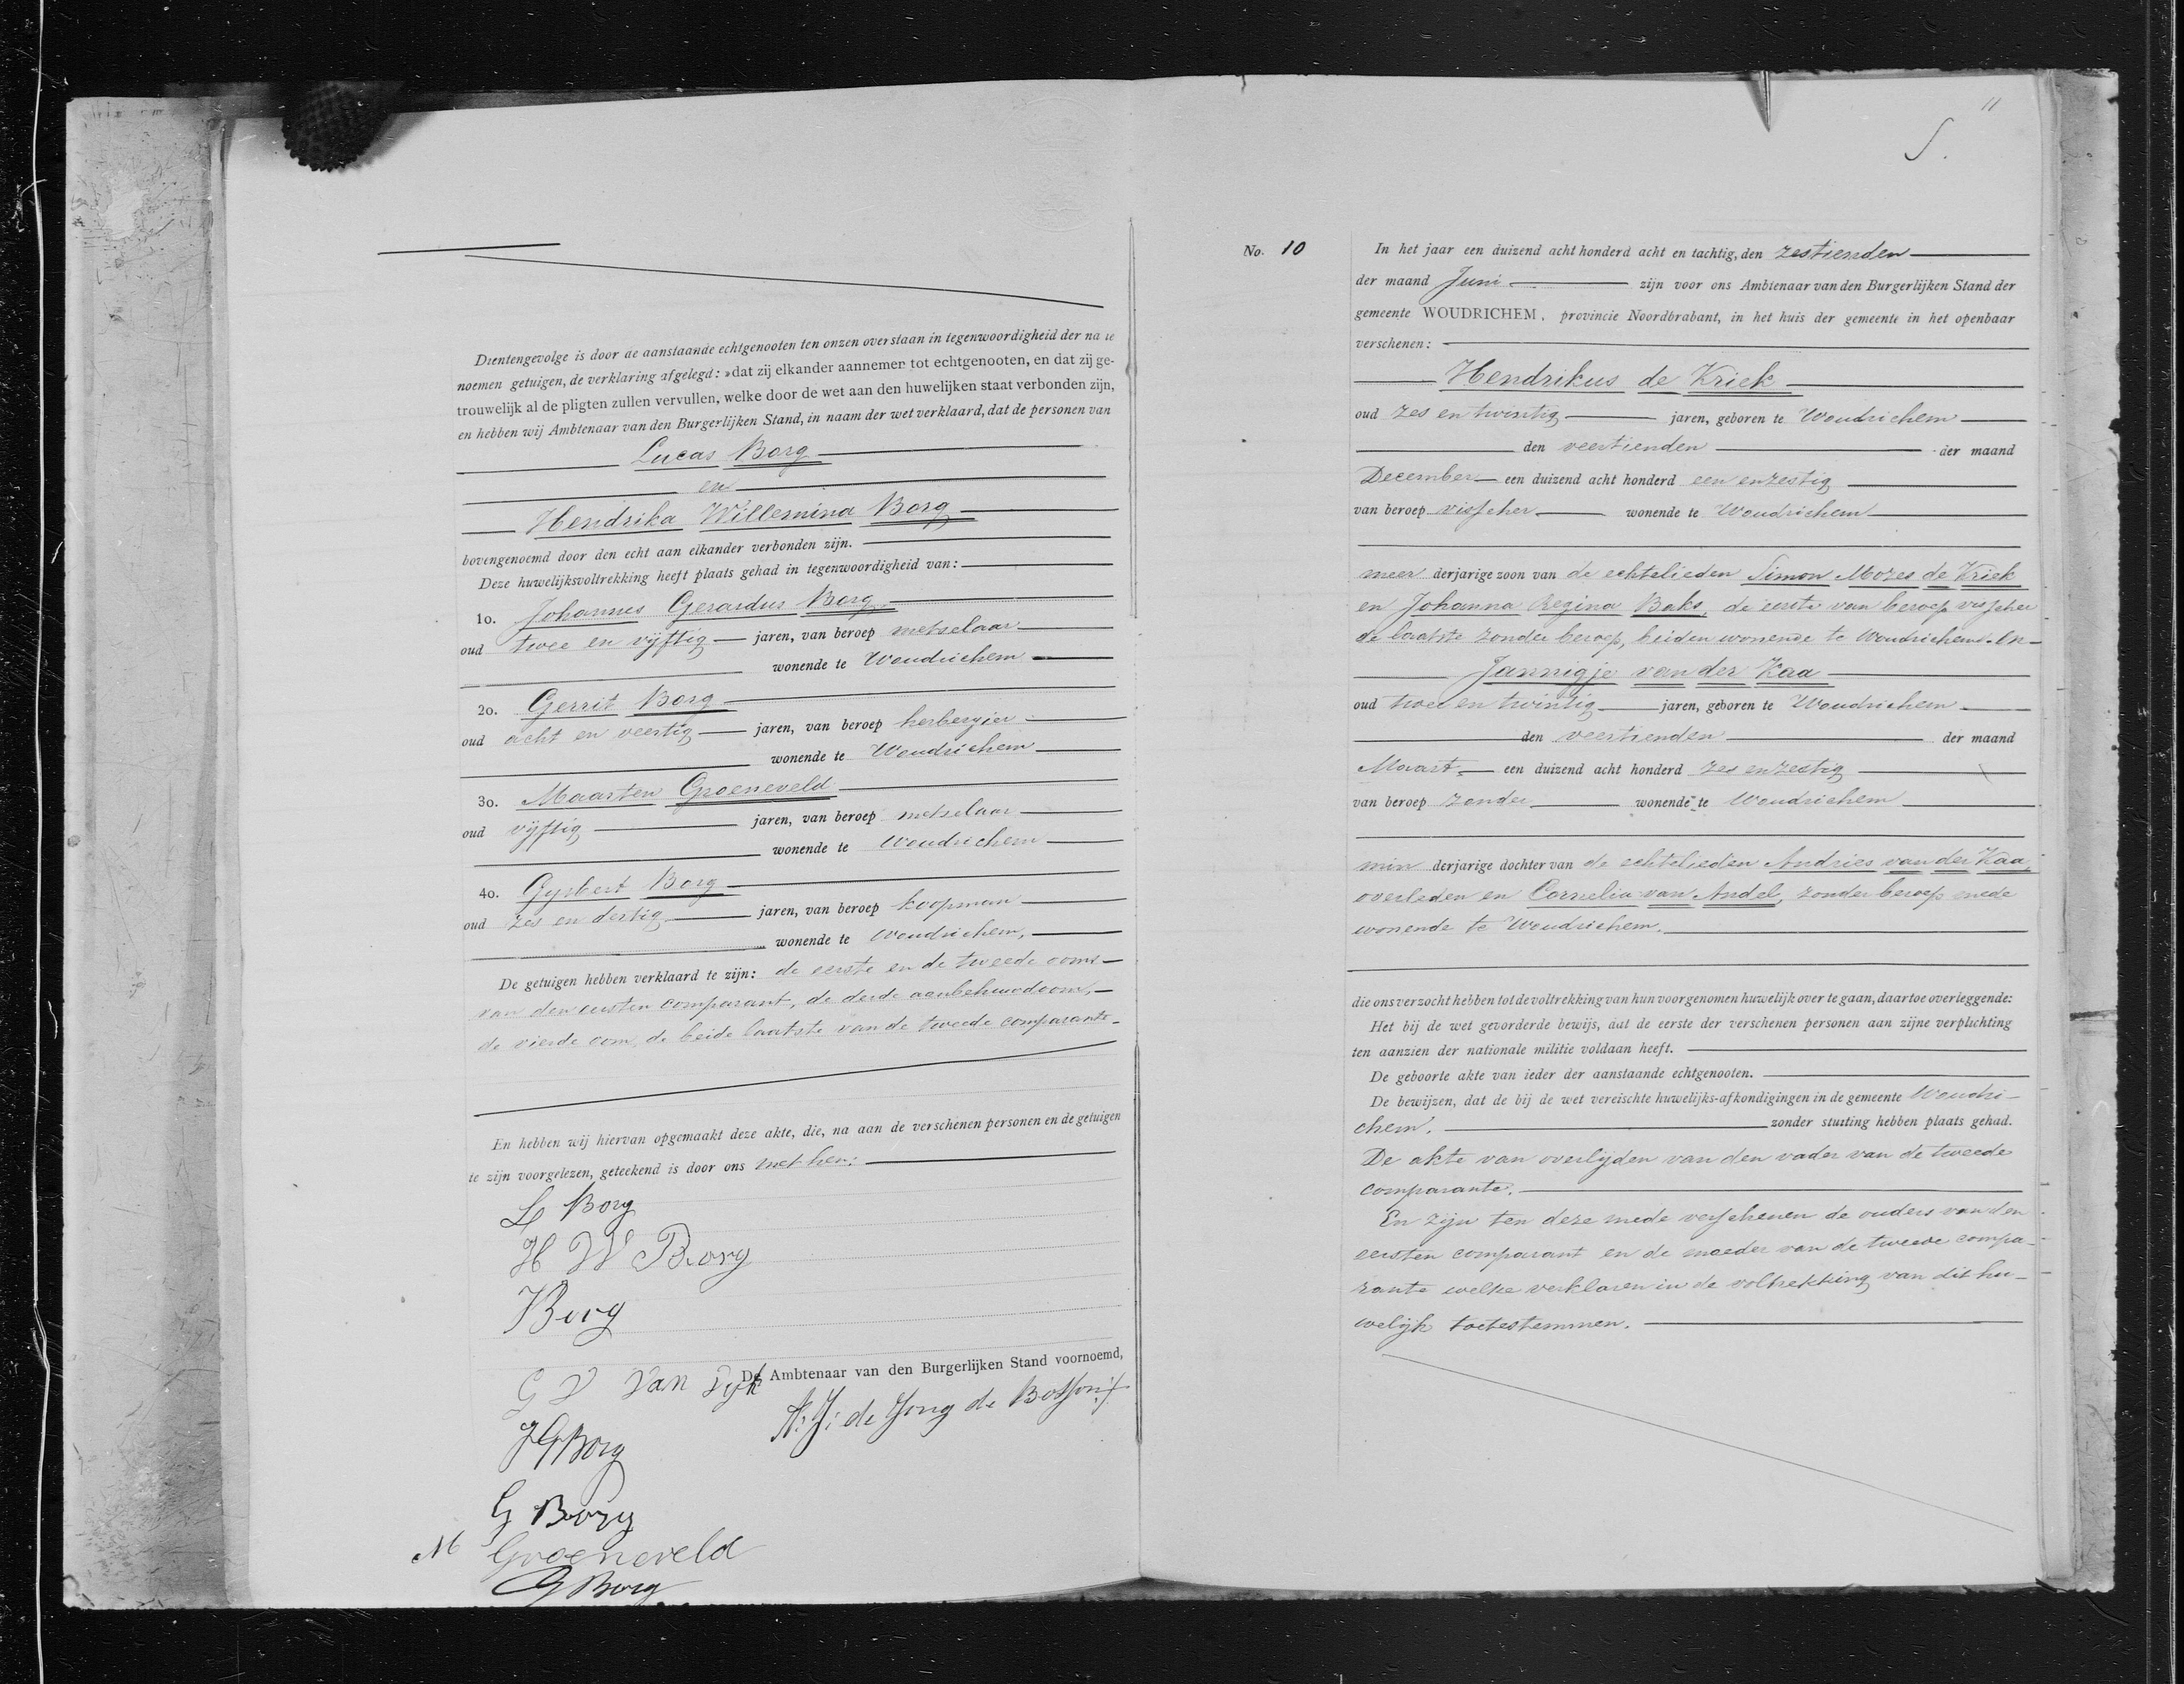 Dientengevolge is door de aanstaande echtgenooten ten onzen overstaan in tegenwoordigheid der na te
noemen getuigen, de verklaring afgelegd: »dat zij elkander aannemen tot echtgenooten, en dat zij ge-
trouwelijk al de pligten zullen vervullen, welke door de wet aan den huwelijken staat verbonden zijn,
en hebben wij Ambtenaar van den Burgerlijken Stand, in naam der wet verklaard, dat de personen van
Lucas Borg
en
Hendrika Willemina Borg
bovengenoemd door den echt aan elkander verbonden zijn.
Deze huwelijksvoltrekking heeft plaats gehad in tegenwoordigheid van:
1o. Johannes Gerardus Borg
oud twee en vijftig jaren, van beroep metselaar
wonende te Woudrichem
2o. Gerrit Borg
oud acht en veertig jaren, van beroep herbergier
wonende te Woudrichem
3o. Maarten Groeneveld
oud vijftig jaren, van beroep metselaar
wonende te Woudrichem
4o. Gysbert Borg
oud zes en dertig jaren, van beroep koopman
wonende te Woudrichem,
De getuigen hebben verklaard te zijn: de eerste en de tweede ooms
van den eersten comparant, de derde aanbehuwdoom,
de vierde oom, de beide laatste van de tweede comparante
En hebben wij hiervan opgemaakt deze akte, die, na aan de verschenen personen en de getuigen
te zijn voorgelezen, geteekend is door ons met hen:
L Borg
H W Borg
Borg
G V Van Dyk
De Ambtenaar van den Burgerlijken Stand voornoemd,
A. J. de Jong de
JG Borg
G Borg
M Groeneveld
G Borg
11
S.
No. 10
In het jaar een duizend acht honderd acht en tachtig, den zestienden
der maand Juni zijn voor ons Ambtenaar van den Burgerlijken Stand der
gemeente WOUDRICHEM, provincie Noordbrabant, in het huis der gemeente in het openbaar
verschenen:
Hendrikus de Kriek
oud zes en twintig jaren, geboren te Woudrichem
den veertienden der maand
December een duizend acht honderd een en zestig
van beroep visscher wonende te Woudrichem
meer derjarige zoon van de echtelieden Simon Mozes de Kriek
en Johanna Regina Baks, de eerste van beroep visscher
de laatste zonder beroep, beiden wonende te Woudrichem. En
Jannigje van der Kaa
oud twee en twintig jaren, geboren te Woudrichem
den veertienden der maand
Maart een duizend acht honderd zes en zestig
van beroep zonder wonende te Woudrichem
min derjarige dochter van de echtelieden Andries van der Kaa,
overleden en Cornelia van Andel, zonder beroep mede
wonende te Woudrichem.
die ons verzocht hebben tot de voltrekking van hun voorgenomen huwelijk over te gaan, daartoe overleggende:
Het bij de wet gevorderde bewijs, dat de eerste der verschenen personen aan zijne verplichting
ten aanzien der nationale militie voldaan heeft.
De geboorte akte van ieder der aanstaande echtgenooten.
De bewijzen, dat de bij de wet vereischte huwelijks-afkondigingen in de gemeente Woudri-
chem. zonder stuiting hebben plaats gehad.
De akte van overlijden van den vader van de tweede
comparante.
En zijn ten deze mede verschenen de ouders van den
eersten comparant en de moeder van de tweede compa-
rante welke verklaren in de voltrekking van dit hu-
welijk toetestemmen.